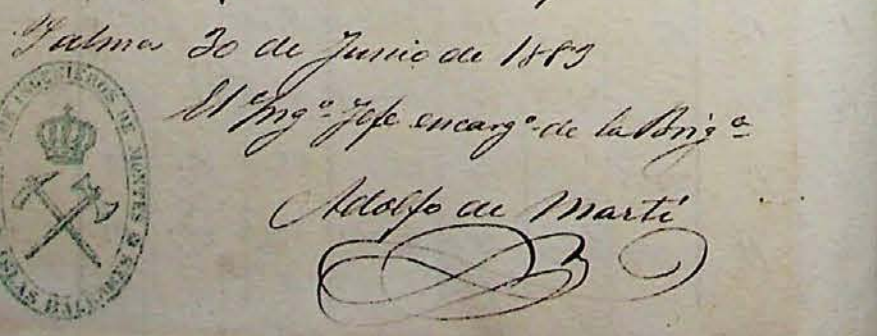 Palma 30 de Junio de 1883
El Ing.º Jefe encarg.º de la Brig.ª
Adolfo de Martí
INGENIEROS DE MONTES
ISLAS BALEARES